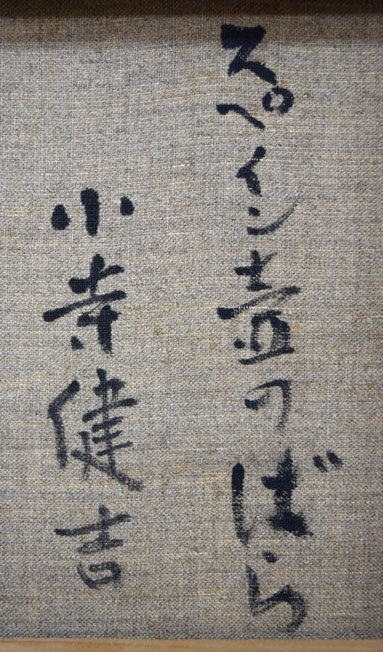 スペイン壺のばら
小寺健吉